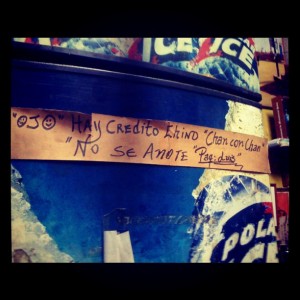 CE ICE
"OJO" HAY CREDITO CHINO "Chan con Chan"
"NO SE ANOTE "Pag: dws"
POLA